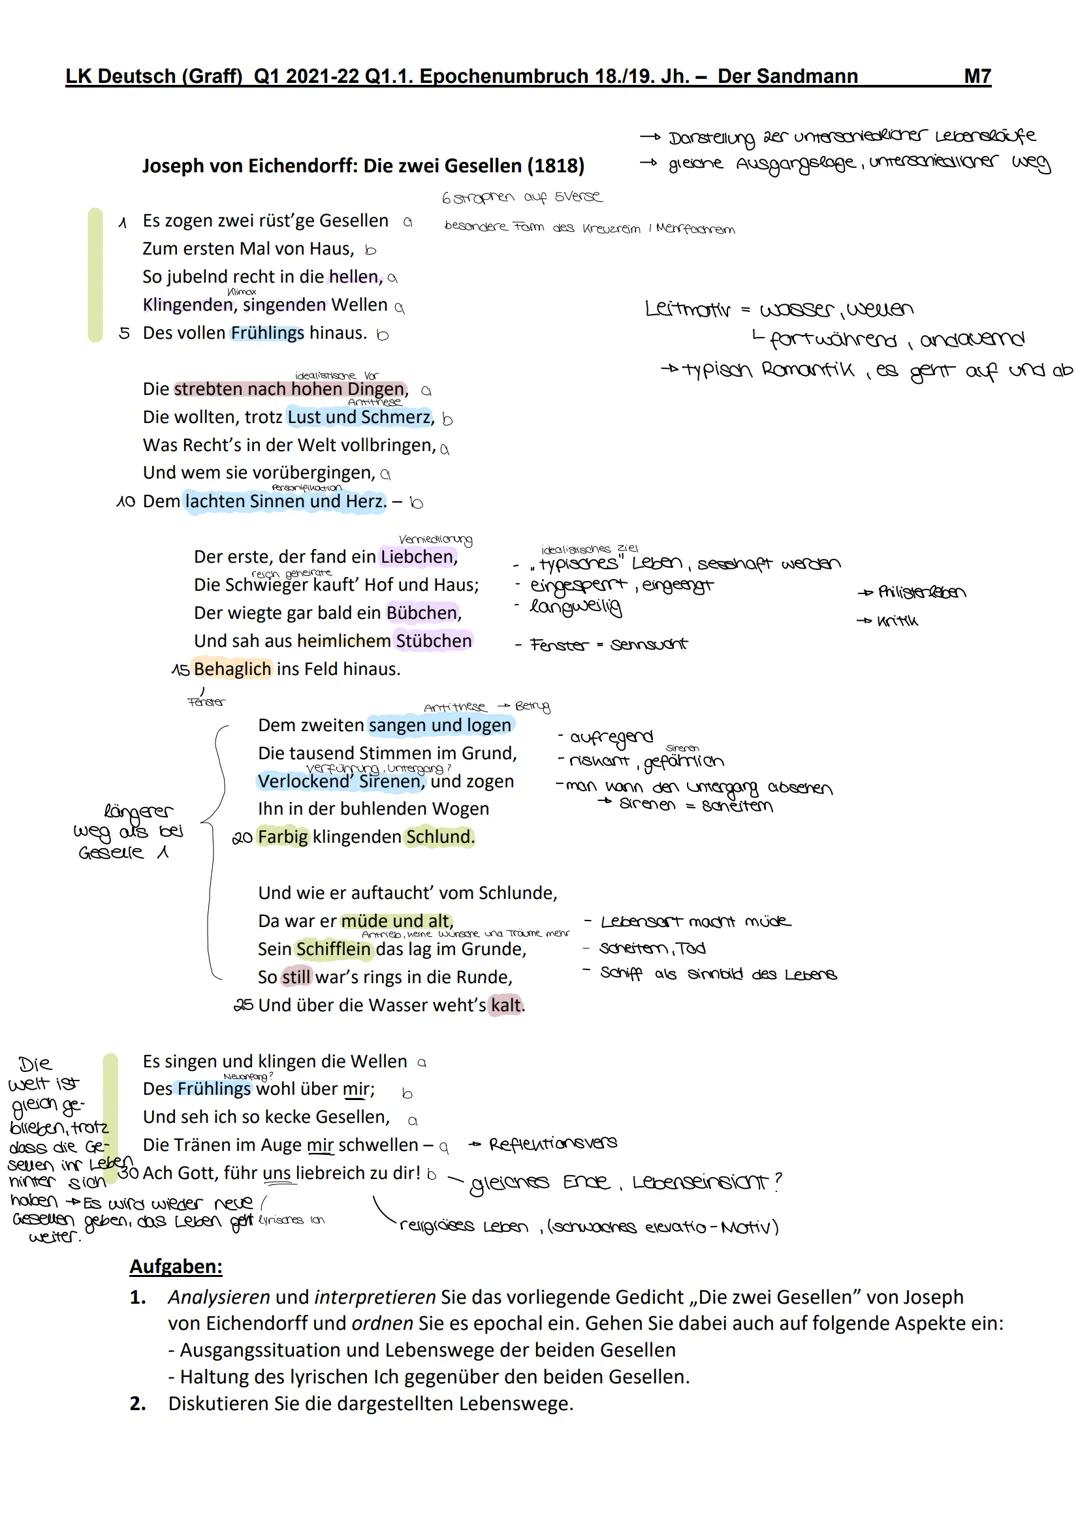 LK Deutsch (Graff) Q1 2021-22 Q1.1. Epochenumbruch 18./19. Jh. – Der Sandmann M7
→ Darstellung 2er unterschiedlicher Lebensläufe
→ gleiche Ausgangslage, unterschiedlicher Weg
Joseph von Eichendorff: Die zwei Gesellen (1818)
6 Strophen auf 5 Verse
besondere Form des Kreuzreim / Mehrfachreim
1 Es zogen zwei rüst'ge Gesellen a
Zum ersten Mal von Haus, b
So jubelnd recht in die hellen, a
Klimax
Klingenden, singenden Wellen a
5 Des vollen Frühlings hinaus. b
Leitmotiv = Wasser, Wellen
fortwährend, andauernd
→ typisch Romantik, es geht auf und ab
idealistische Vor
Die strebten nach hohen Dingen, a
Antithese
Die wollten, trotz Lust und Schmerz, b
Was Recht's in der Welt vollbringen, a
Und wem sie vorübergingen, a
Personifikation
10 Dem lachten Sinnen und Herz. – b
Verniedlichung
Der erste, der fand ein Liebchen,
reich geheiratet
Die Schwieger kauft' Hof und Haus;
Der wiegte gar bald ein Bübchen,
Und sah aus heimlichem Stübchen
15 Behaglich ins Feld hinaus.
Fenster
idealistisches Ziel
- „typisches" Leben, sesshaft werden
- eingesperrt, eingeengt
- langweilig
- Fenster = Sehnsucht
→ Philisterleben
→ Kritik
Antithese → Betrug
Dem zweiten sangen und logen
Die tausend Stimmen im Grund,
Verführung, Untergang?
Verlockend' Sirenen, und zogen
Ihn in der buhlenden Wogen
20 Farbig klingenden Schlund.
- aufregend
Sirenen
- riskant, gefährlich
- man kann den Untergang absehen
→ Sirenen = Scheitern
längerer
Weg als bei
Geselle 1
Und wie er auftaucht' vom Schlunde,
Da war er müde und alt,
Antrieb, keine Wünsche und Träume mehr
Sein Schifflein das lag im Grunde,
So still war's rings in die Runde,
25 Und über die Wasser weht's kalt.
- Lebensart macht müde
- Scheitern, Tod
- Schiff als Sinnbild des Lebens
Es singen und klingen die Wellen a
Neuanfang?
Des Frühlings wohl über mir; b
Und seh ich so kecke Gesellen, a
Die Tränen im Auge mir schwellen – a → Reflektionsvers
30 Ach Gott, führ uns liebreich zu dir! b
gleiches Ende, Lebenseinsicht?
lyrisches Ich
religiöses Leben, (schwaches elevatio-Motiv)
Die
Welt ist
gleich ge-
blieben, trotz
dass die Ge-
sellen ihr Leben
hinter sich
haben → Es wird wieder neue
Gesellen geben, das Leben geht
weiter.
Aufgaben:
1. Analysieren und interpretieren Sie das vorliegende Gedicht „Die zwei Gesellen" von Joseph
von Eichendorff und ordnen Sie es epochal ein. Gehen Sie dabei auch auf folgende Aspekte ein:
- Ausgangssituation und Lebenswege der beiden Gesellen
- Haltung des lyrischen Ich gegenüber den beiden Gesellen.
2. Diskutieren Sie die dargestellten Lebenswege.